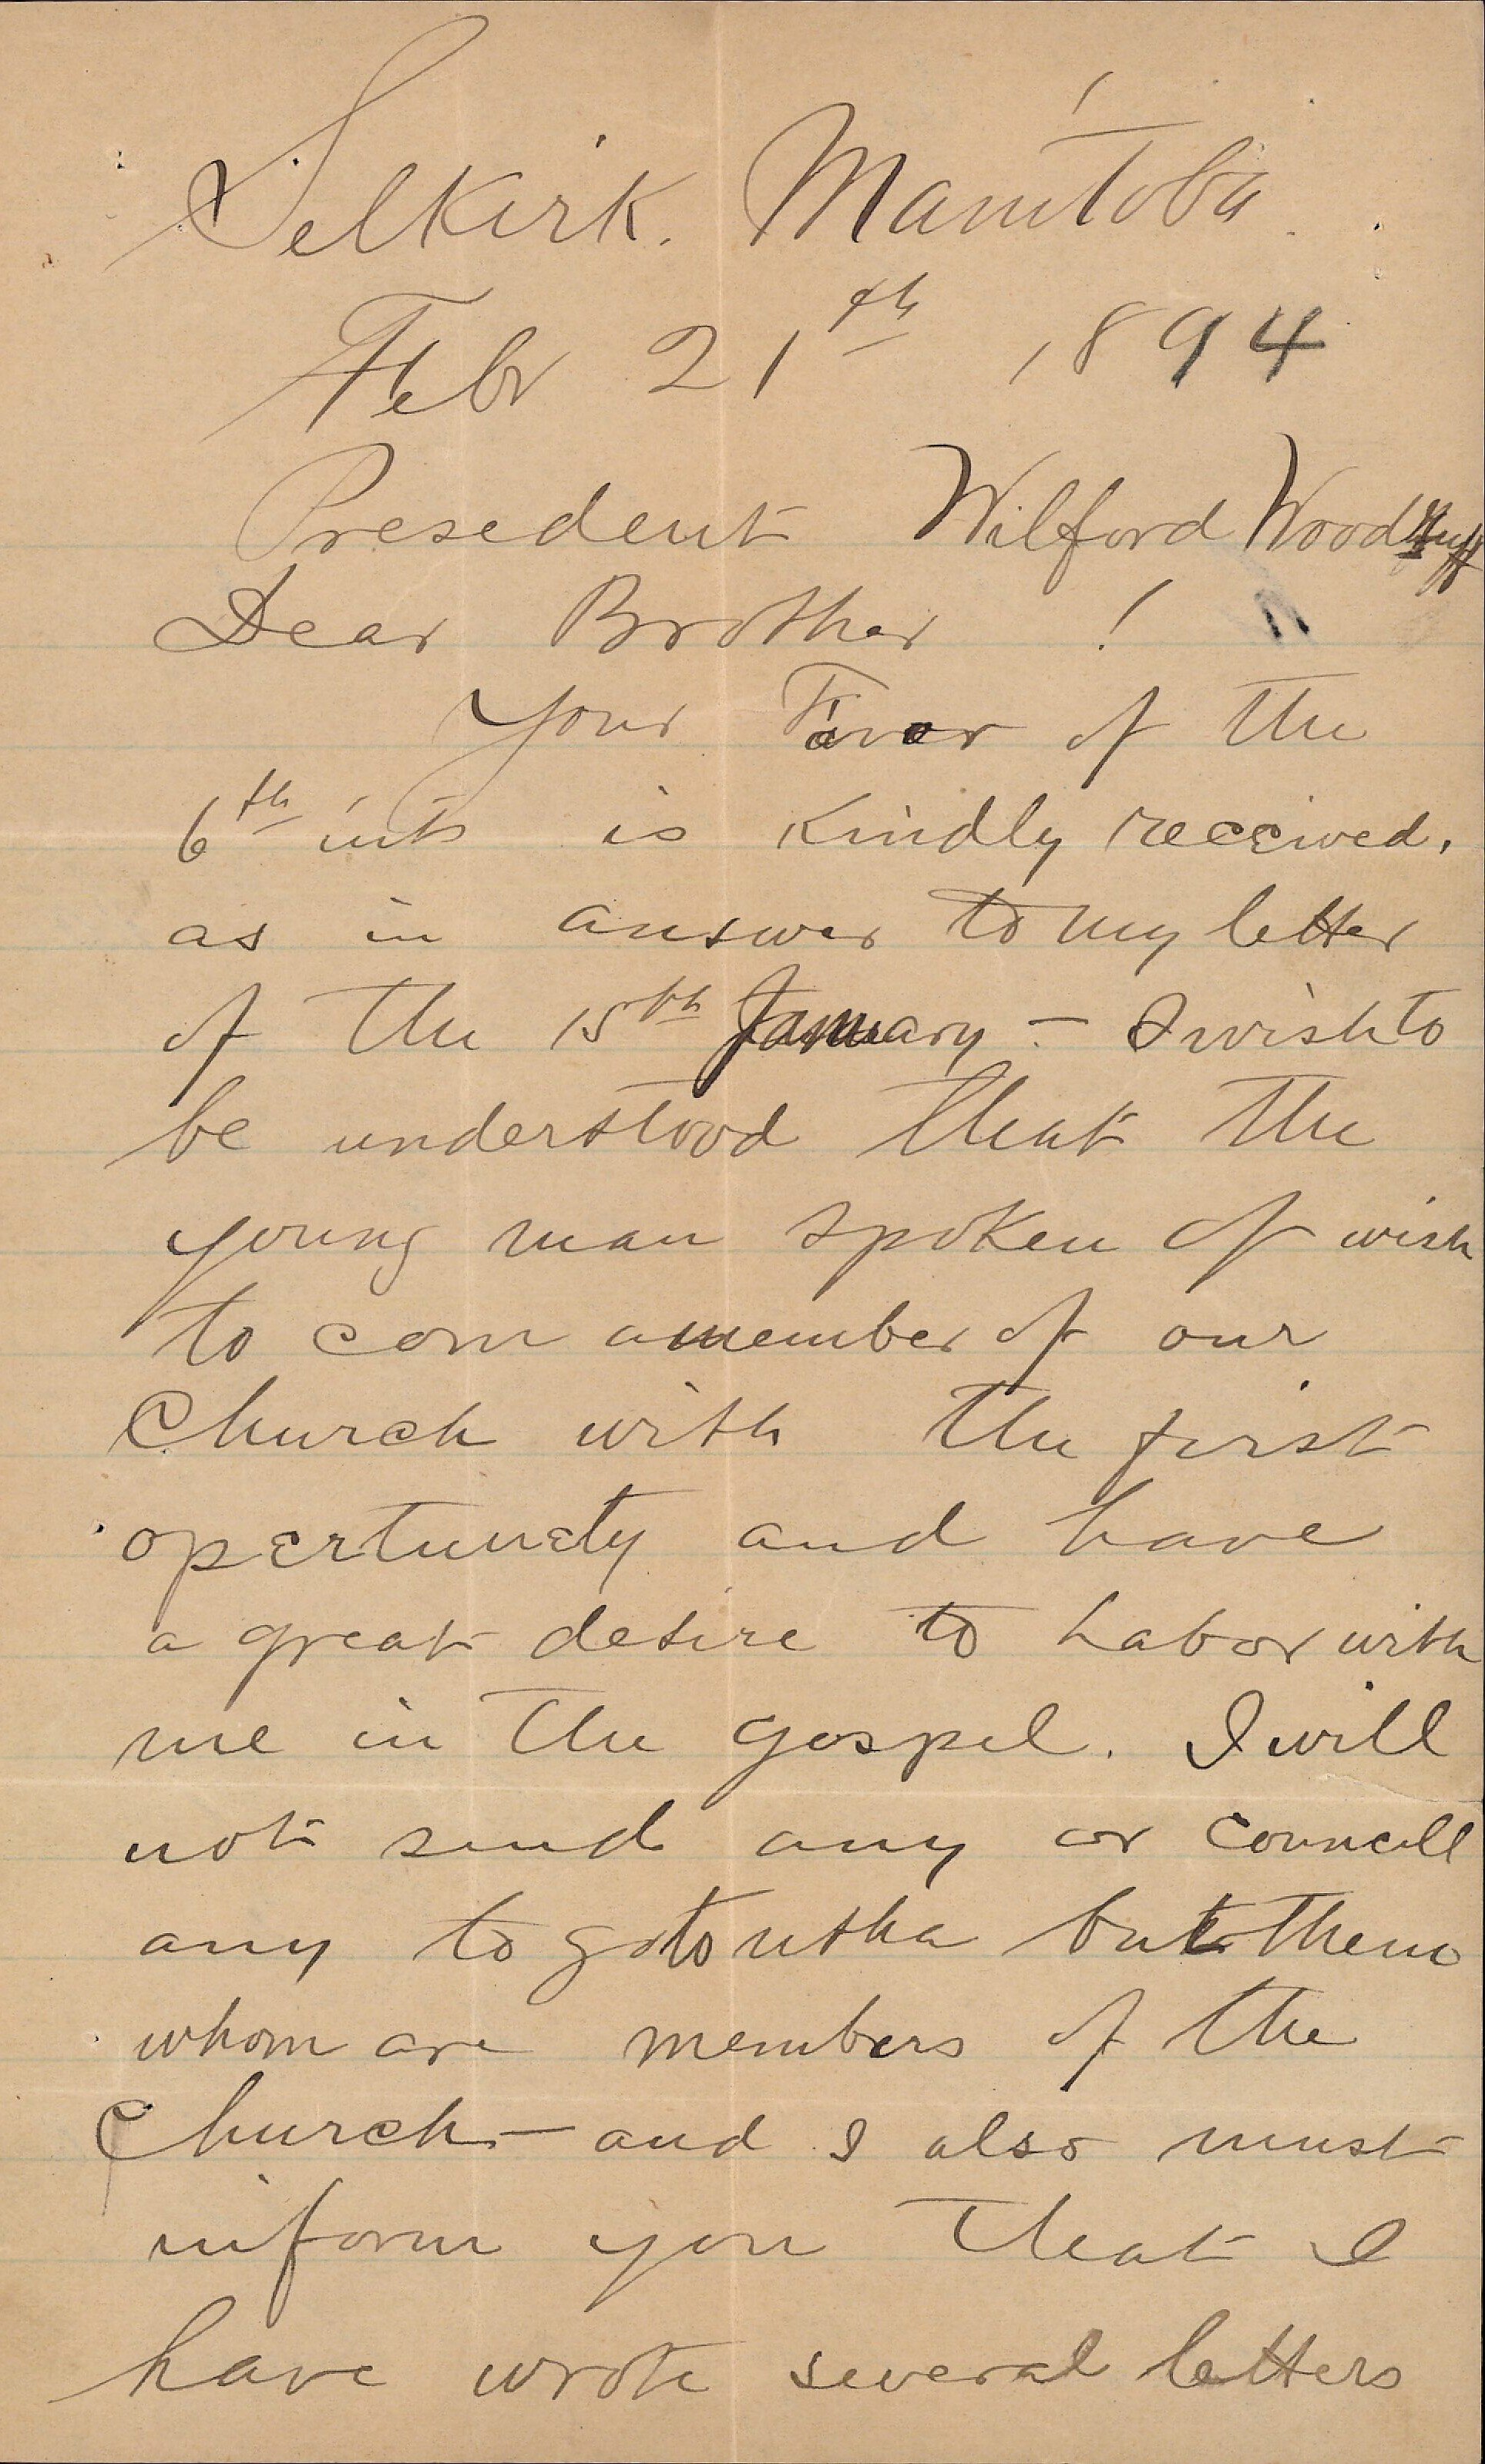 Selkirk. Manitoba.
Febr 21th 1894
Presedent Wilford Woodruff
Dear Brother!
Your Favor of the
6th ints is kindly received.
as in answer to my letter
of the 15th January — I wish to
be understood that the
young man spoken of wish
to com a member of our
Church with the first
opertunety and have
a great desire to Labor with
me in the gospel. I will
not send any or councell
any to go to utha but them
whom are members of the
Church — and I also must
inform you that I
have wrote several letters